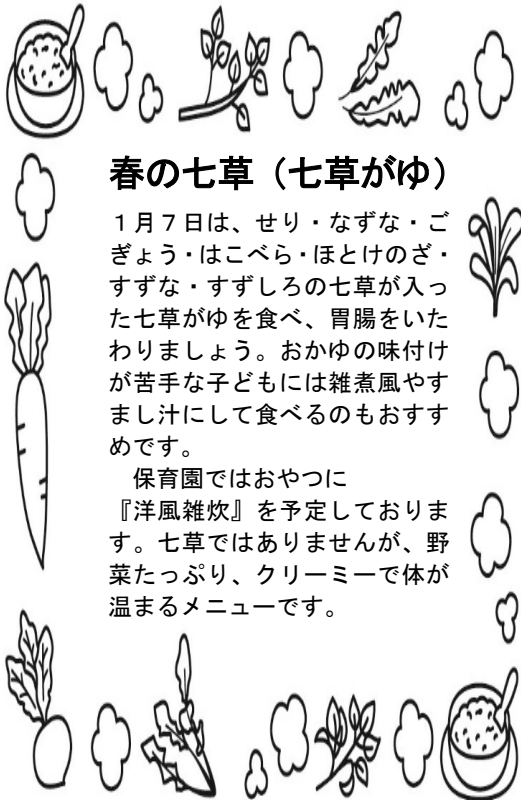 春の七草（七草がゆ）
１月７日は、せり・なずな・ご
ぎょう・はこべら・ほとけのざ・
すずな・すずしろの七草が入っ
た七草がゆを食べ、胃腸をいた
わりましょう。おかゆの味付け
が苦手な子どもには雑煮風やす
まし汁にして食べるのもおすす
めです。
　保育園ではおやつに
『洋風雑炊』を予定しておりま
す。七草ではありませんが、野
菜たっぷり、クリーミーで体が
温まるメニューです。